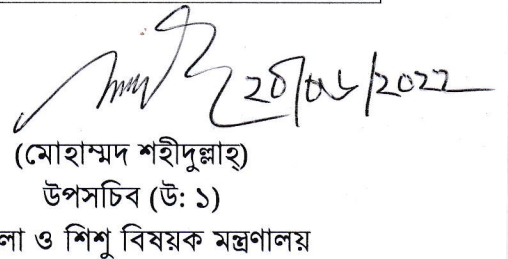 /2022
(মোহাম্মদ শহীদুল্লাহ্)
উপসচিব (উ: ১)
লা ও শিশু বিষয়ক মন্ত্রণালয়